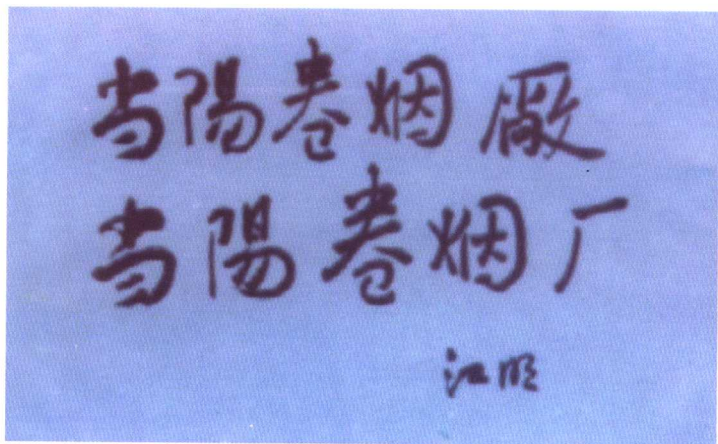 当陽卷烟廠
当陽卷烟厂